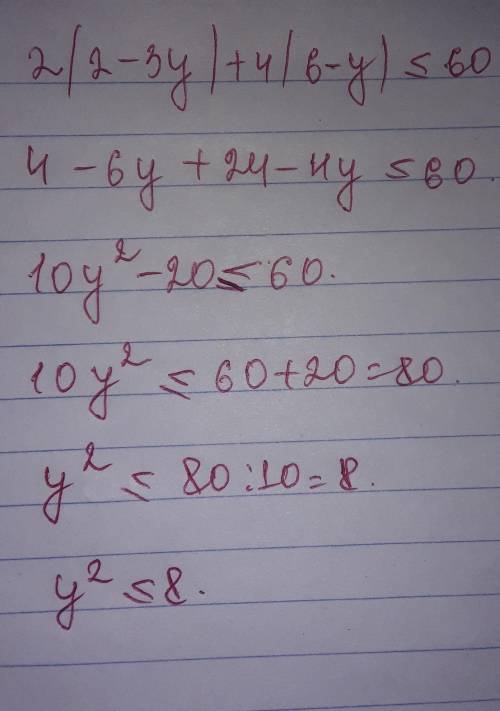 2(2-3y)+4(6-y)≤60
4-6y+24-4y≤60.
10y²-20≤60.
10y²≤60+20=80.
y²≤80:10=8.
y²≤8.